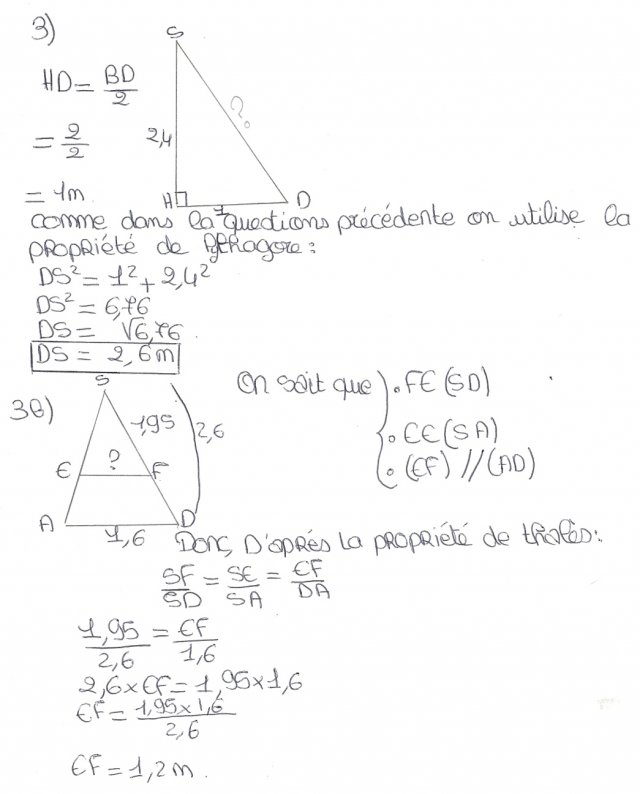 3)
S
HD = BD/2
= 2/2
= 1m
2,4
?
H
1
D
comme dans la questions précédente on utilise la
propriété de Pythagore :
DS² = 1² + 2,4²
DS² = 6,76
DS = √6,76
DS = 2,6 m
3B)
S
1,95
2,6
E
?
F
A
1,6
D
On sait que
• F∈(SD)
• E∈(SA)
• (EF) // (AD)
Donc, D'après la propriété de thalès :
SF/SD = SE/SA = EF/DA
1,95/2,6 = EF/1,6
2,6 × EF = 1,95 × 1,6
EF = 1,95 × 1,6/2,6
EF = 1,2 m.